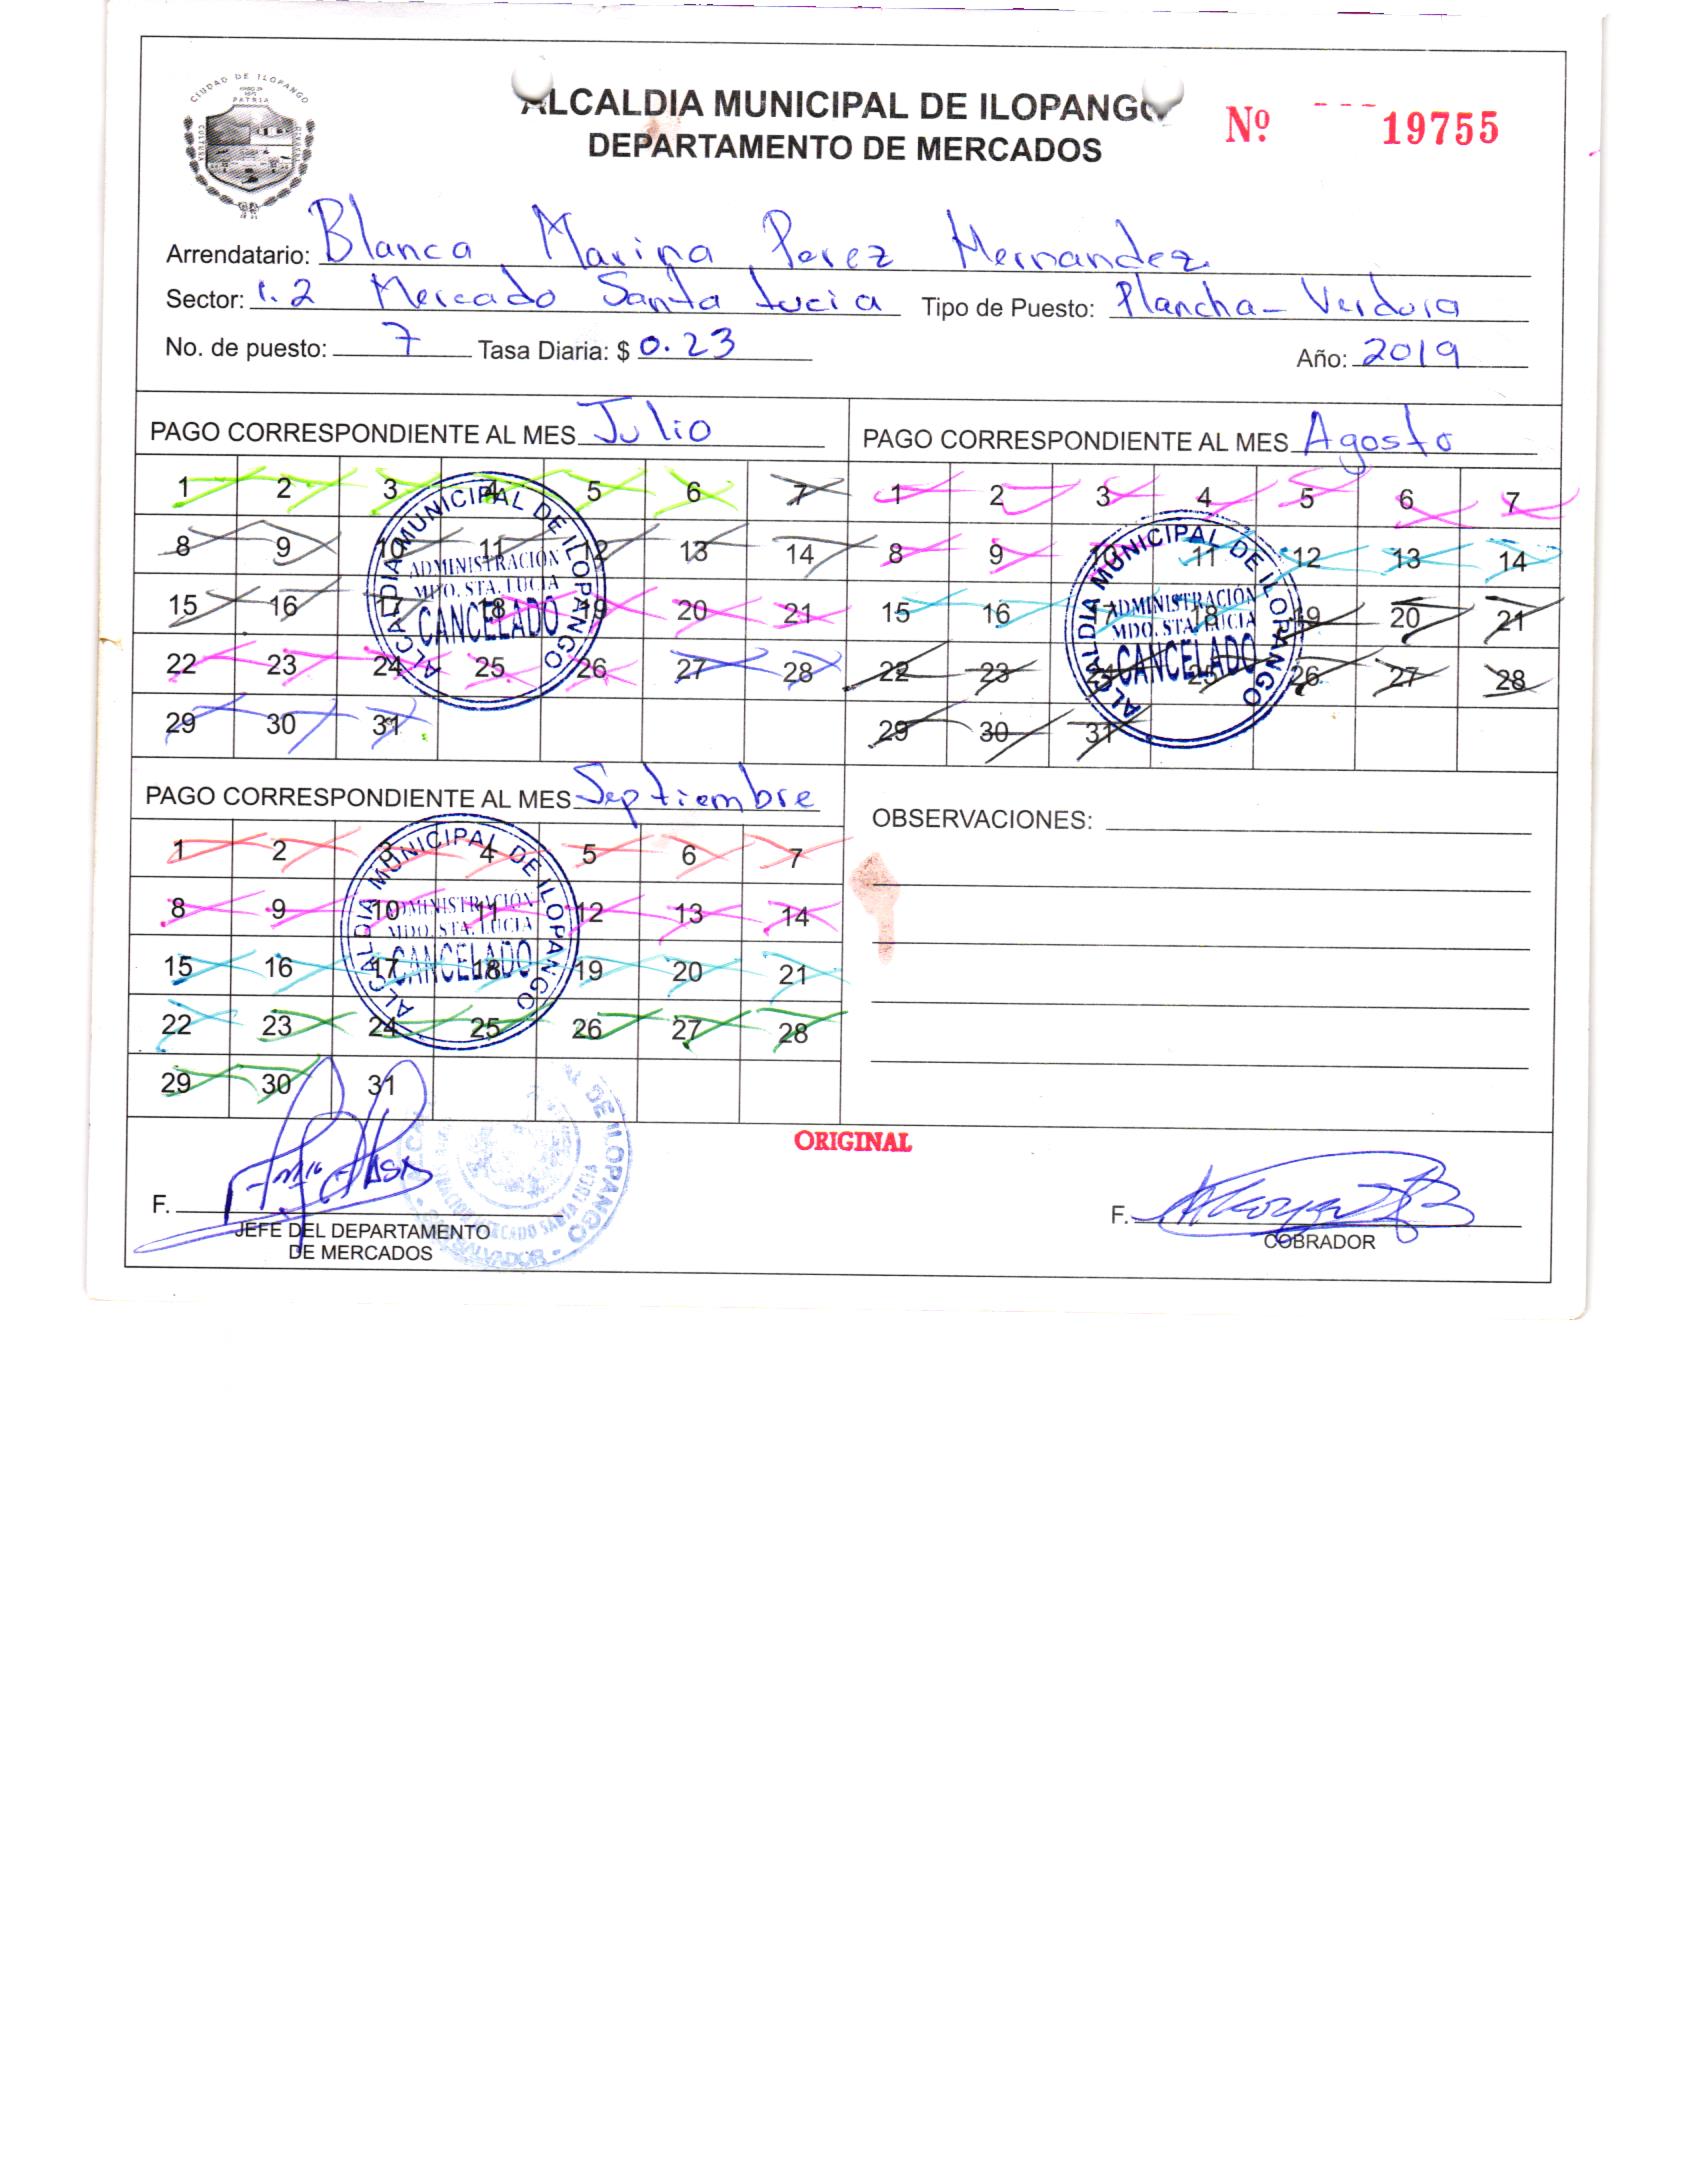 CIUDAD DE ILOPANGO
PATRIA
CULTURA
ALCALDIA MUNICIPAL DE ILOPANGO
DEPARTAMENTO DE MERCADOS
Nº 19755
Arrendatario: Blanca Marina Perez Hernandez
Sector: 1.2 Mercado Santa Lucia Tipo de Puesto: Plancha - Verdura
No. de puesto: 7 Tasa Diaria: $ 0.23 Año: 2019
PAGO CORRESPONDIENTE AL MES Julio
1 2 3 4 5 6 7
8 9 10 11 12 13 14
15 16 17 18 19 20 21
22 23 24 25 26 27 28
29 30 31
ALCALDIA MUNICIPAL DE ILOPANGO
ADMINISTRACIÓN
MDO. STA. LUCIA
CANCELADO
PAGO CORRESPONDIENTE AL MES Agosto
1 2 3 4 5 6 7
8 9 10 11 12 13 14
15 16 17 18 19 20 21
22 23 24 25 26 27 28
29 30 31
ALCALDIA MUNICIPAL DE ILOPANGO
ADMINISTRACIÓN
MDO. STA. LUCIA
CANCELADO
PAGO CORRESPONDIENTE AL MES Septiembre
1 2 3 4 5 6 7
8 9 10 11 12 13 14
15 16 17 18 19 20 21
22 23 24 25 26 27 28
29 30 31
ALCALDIA MUNICIPAL DE ILOPANGO
ADMINISTRACIÓN
MDO. STA. LUCIA
CANCELADO
OBSERVACIONES:
ORIGINAL
F.
JEFE DEL DEPARTAMENTO
DE MERCADOS
DE ILOPANGO
MERCADO SANTA LUCIA
SALVADOR
F.
COBRADOR